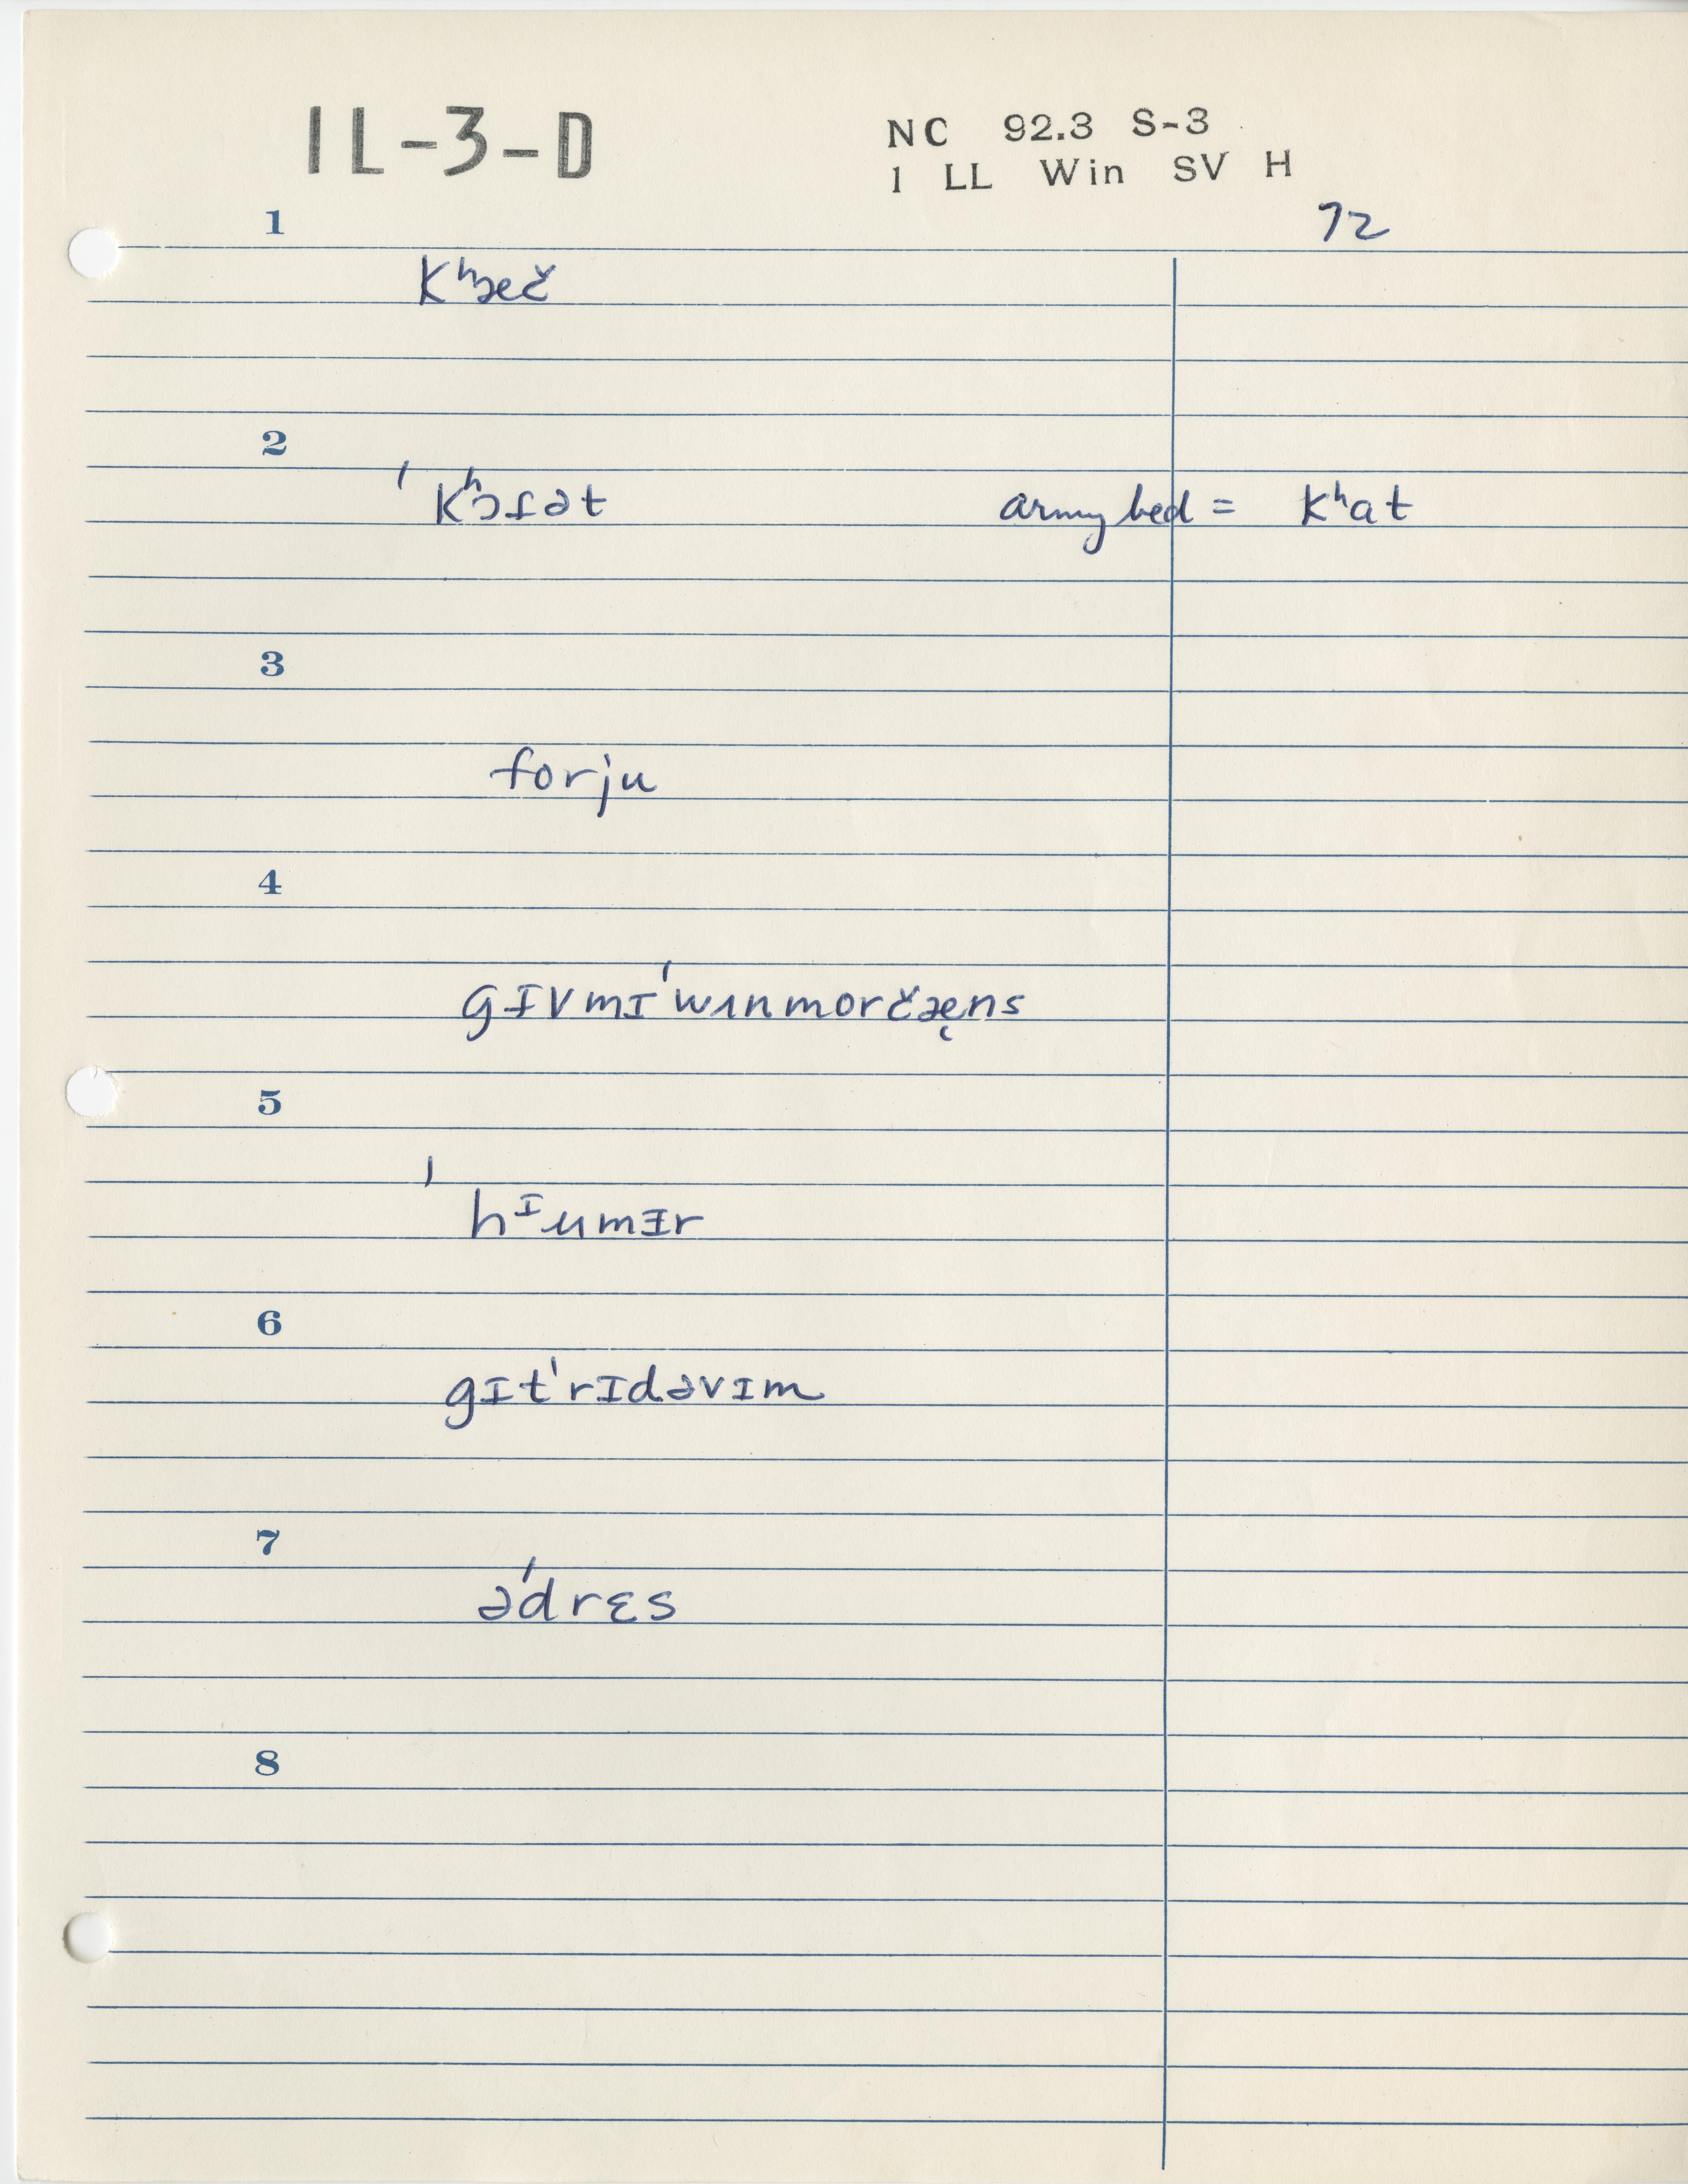 IL-3-D
NC 92.3 S-3
1 LL Win SV H
72
1
kʰæč
2
ˈkʰɔfət army bed = kʰat
3
forju
4
gɪvmɪˈwʌnmorčæ̨ns
5
ˈhᶦumɪr
6
gɪtˈrɪdəvɪm
7
əˈdrɛs
8